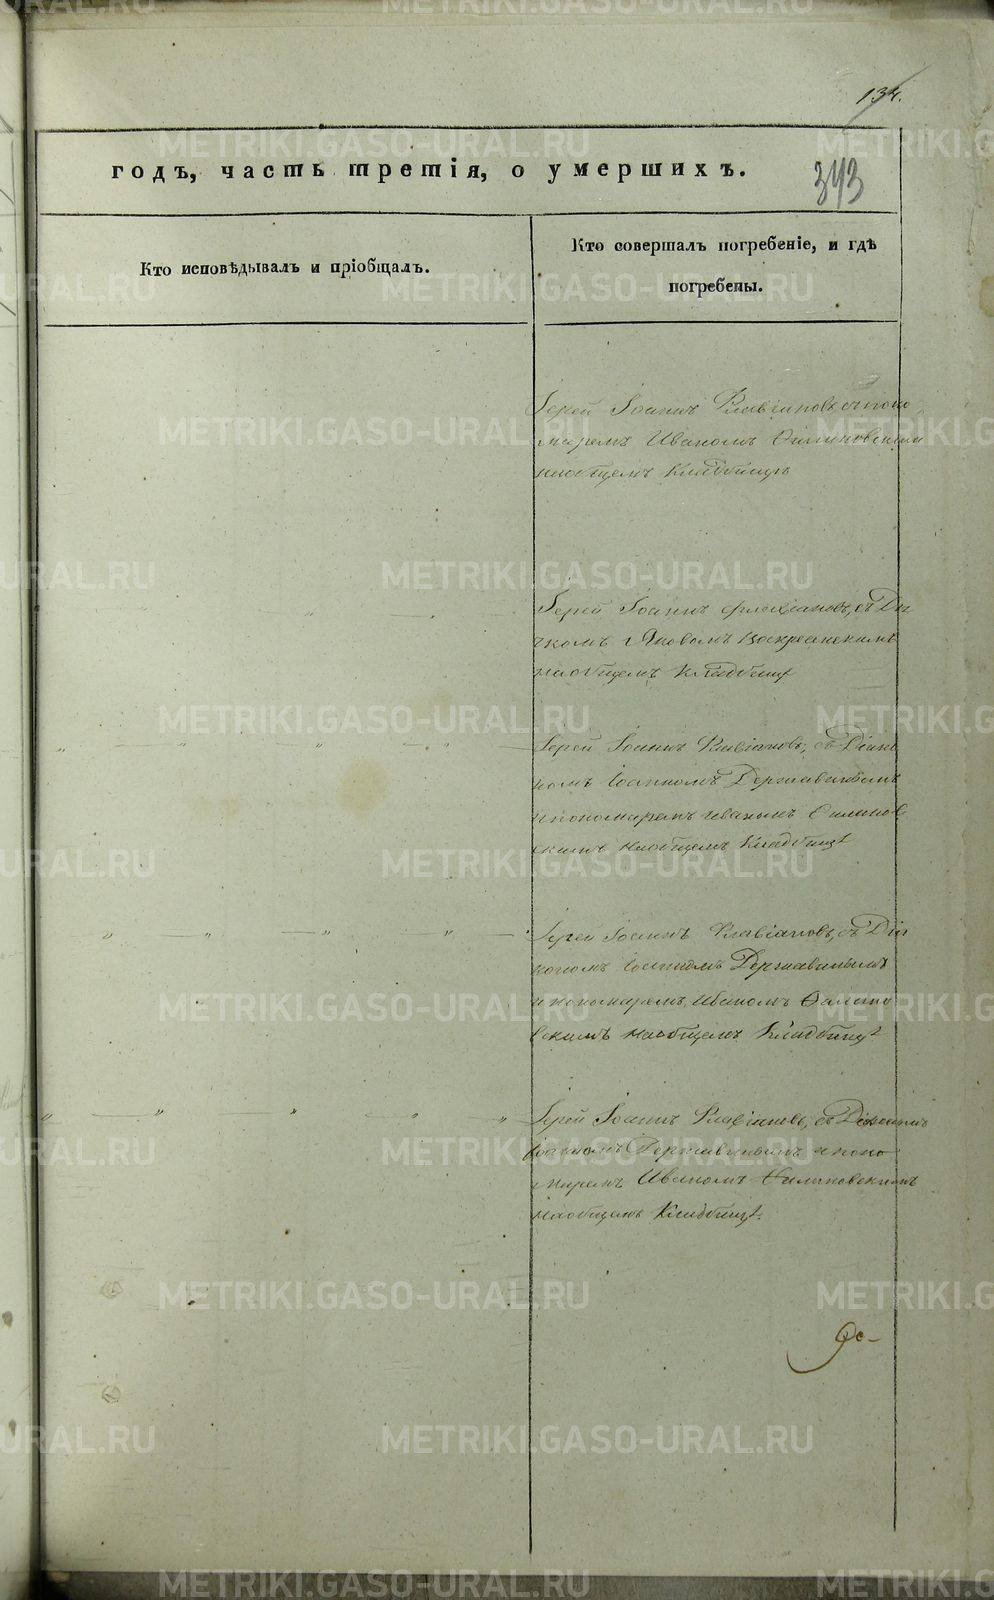 134.
годъ, часть третія, о умершихъ.
343
Кто исповѣдывалъ и пріобщалъ.
Кто совершалъ погребеніе, и гдѣ
погребены.
Іерей Іоаннъ Флавіановъ съ поно
маремъ Иваномъ Филиновскимъ
наобщемъ Кладбищѣ
Іерей Іоаннъ Флавіановъ, съ Дья
чкомъ Яковомъ Воскресенскимъ
наобщемъ Кладбищѣ
Іерей Іоаннъ Флавіановъ, съ Діако
номъ Іоанномъ Державинымъ
и пономаремъ Иваномъ Филинов
скимъ наобщемъ Кладбищѣ
Іерей Іоаннъ Флавіановъ, съ Діа
кономъ Іоанномъ Державинымъ
и пономаремъ Иваномъ Филино
вскимъ наобщемъ Кладбищѣ
Іерей Іоаннъ Флавіановъ, съ Діакономъ
Іоанномъ Державинымъ и поно
маремъ Иваномъ Филиновскимъ
наобщемъ Кладбищѣ.
METRIKI.GASO-URAL.RU